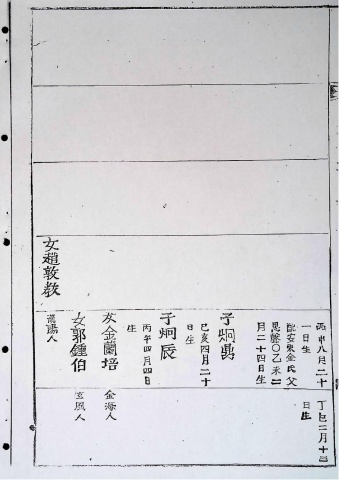 女趙敦教
丙申八月二十
一日生
配安東金氏父
思 〇乙未二
月二十四日生
子炯勇
己亥四月二十
日生
子炯辰
丙午四月四日
生
女金蘭培
女郭鍾伯
漢陽人
丁巳二月十三
日生
金海人
玄風人